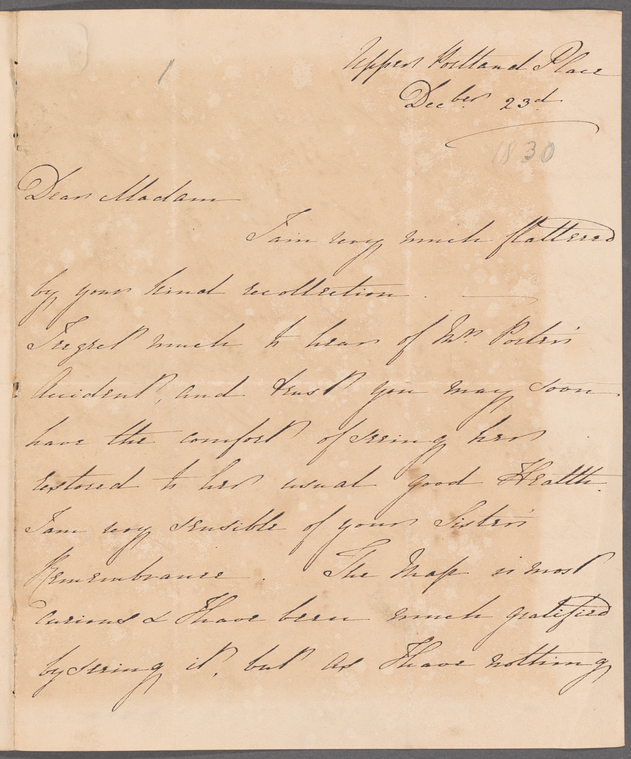 /
Upper Portland Place
Decber 23d
1830
Dear Madam
I am very much flattered
by your kind recollection.
I regret much to hear of Mrs Porter's
Accident, and trust you may soon
have the comfort of seeing her
restored to her usual good Health.
I am very sensible of your Sister's
Remembrance. The Map is most
Curious & I have been much gratified
by seeing it, but as I have nothing